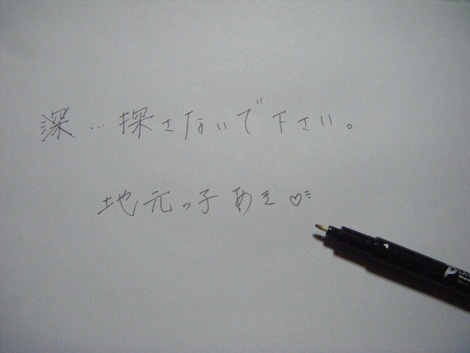 深…探さないで下さい。
地元っ子あき♡